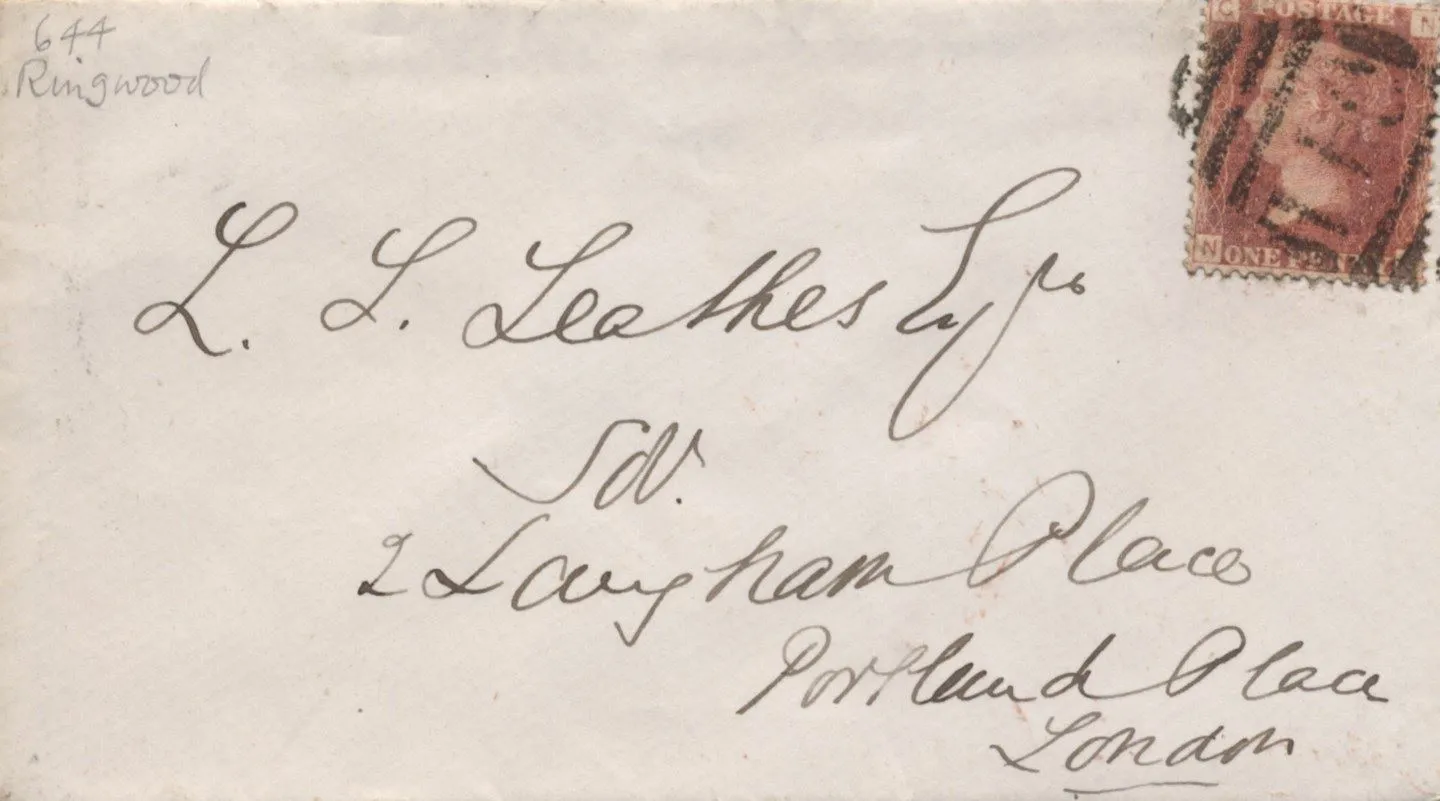 644
Ringwood
C POSTAGE N
N ONE PE
L. L. Leathes Esqre
2 Langham Place
Portland Place
London